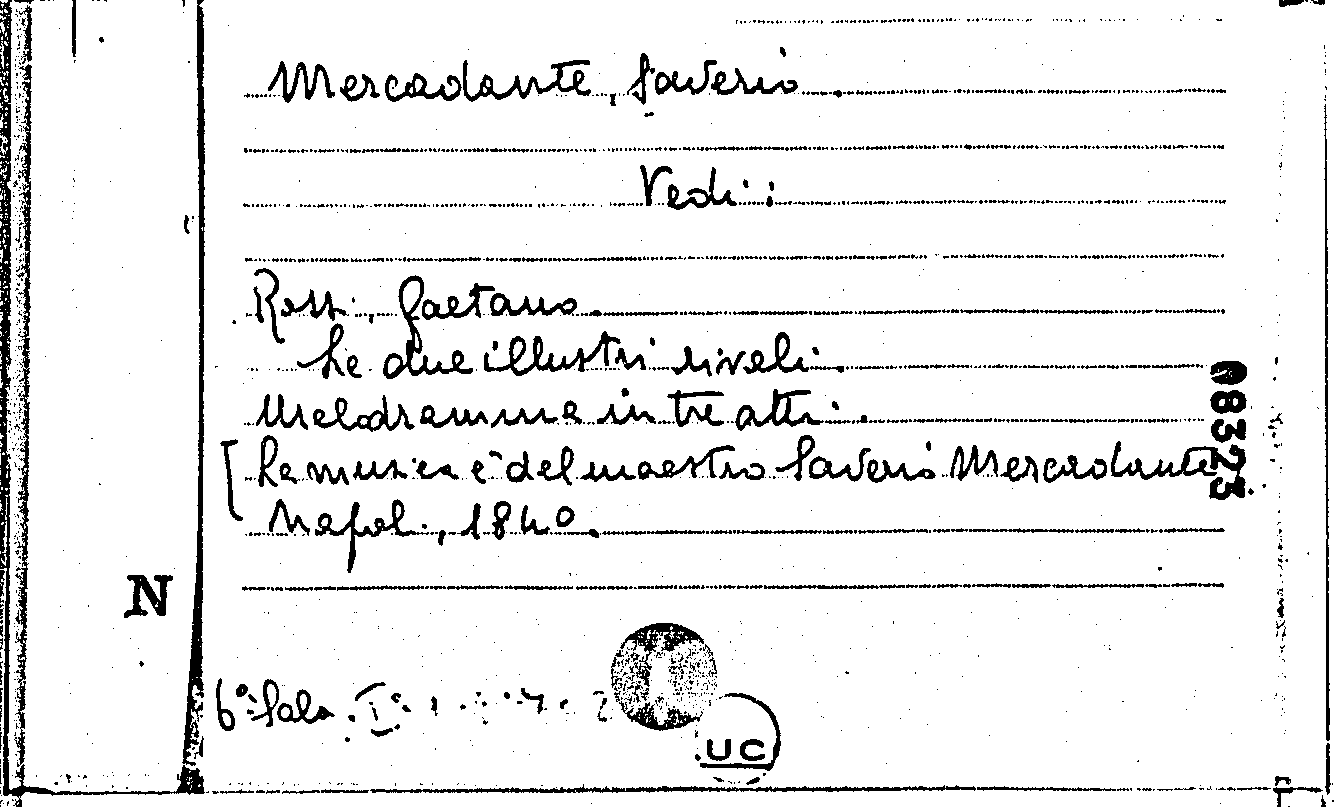 Mercadante, Saverio.
Vedi:
Rossi, Gaetano.
Le due illustri rivali.
Melodramma in tre atti.
[La musica è del maestro Saverio Mercadante
Napoli, 1840.
08323
N
6ª Sala. I
UC